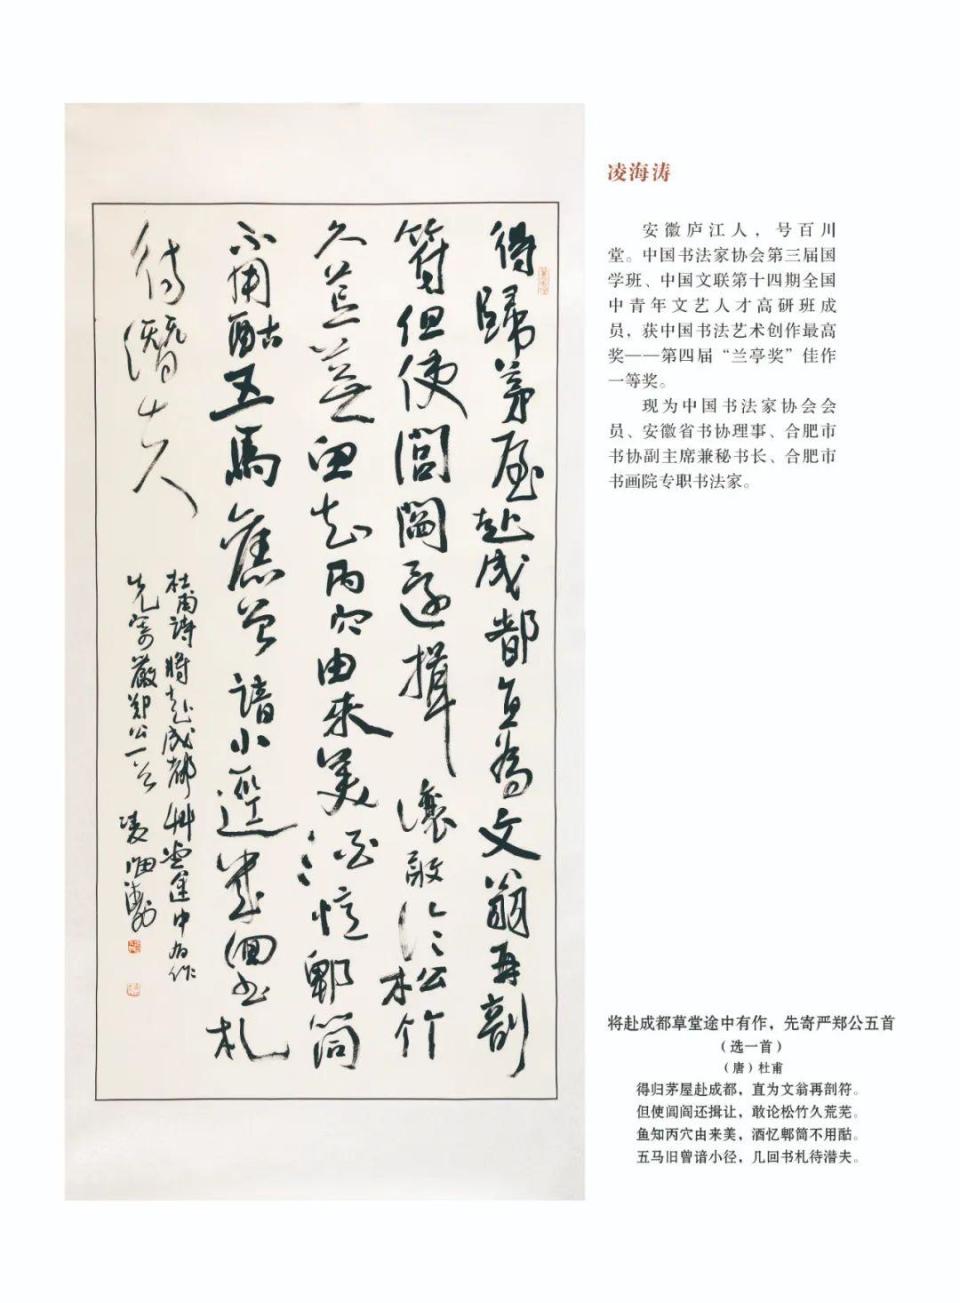 得歸茅屋赴成都直為文翁再剖
符但使閭閻還揖讓敢論松竹
久荒蕪魚知丙穴由來美酒憶郫筒
不用酤五馬舊曾諳小徑幾回書札
待潛夫
杜甫詩將赴成都草堂途中有作
先寄嚴鄭公一首 凌海濤
凌海涛
安徽庐江人，号百川
堂。中国书法家协会第三届国
学班、中国文联第十四期全国
中青年文艺人才高研班成
员，获中国书法艺术创作最高
奖——第四届“兰亭奖”佳作
一等奖。
现为中国书法家协会会
员、安徽省书协理事、合肥市
书协副主席兼秘书长、合肥市
书画院专职书法家。
将赴成都草堂途中有作，先寄严郑公五首
（选一首）
（唐）杜甫
得归茅屋赴成都，直为文翁再剖符。
但使闾阎还揖让，敢论松竹久荒芜。
鱼知丙穴由来美，酒忆郫筒不用酤。
五马旧曾谙小径，几回书札待潜夫。